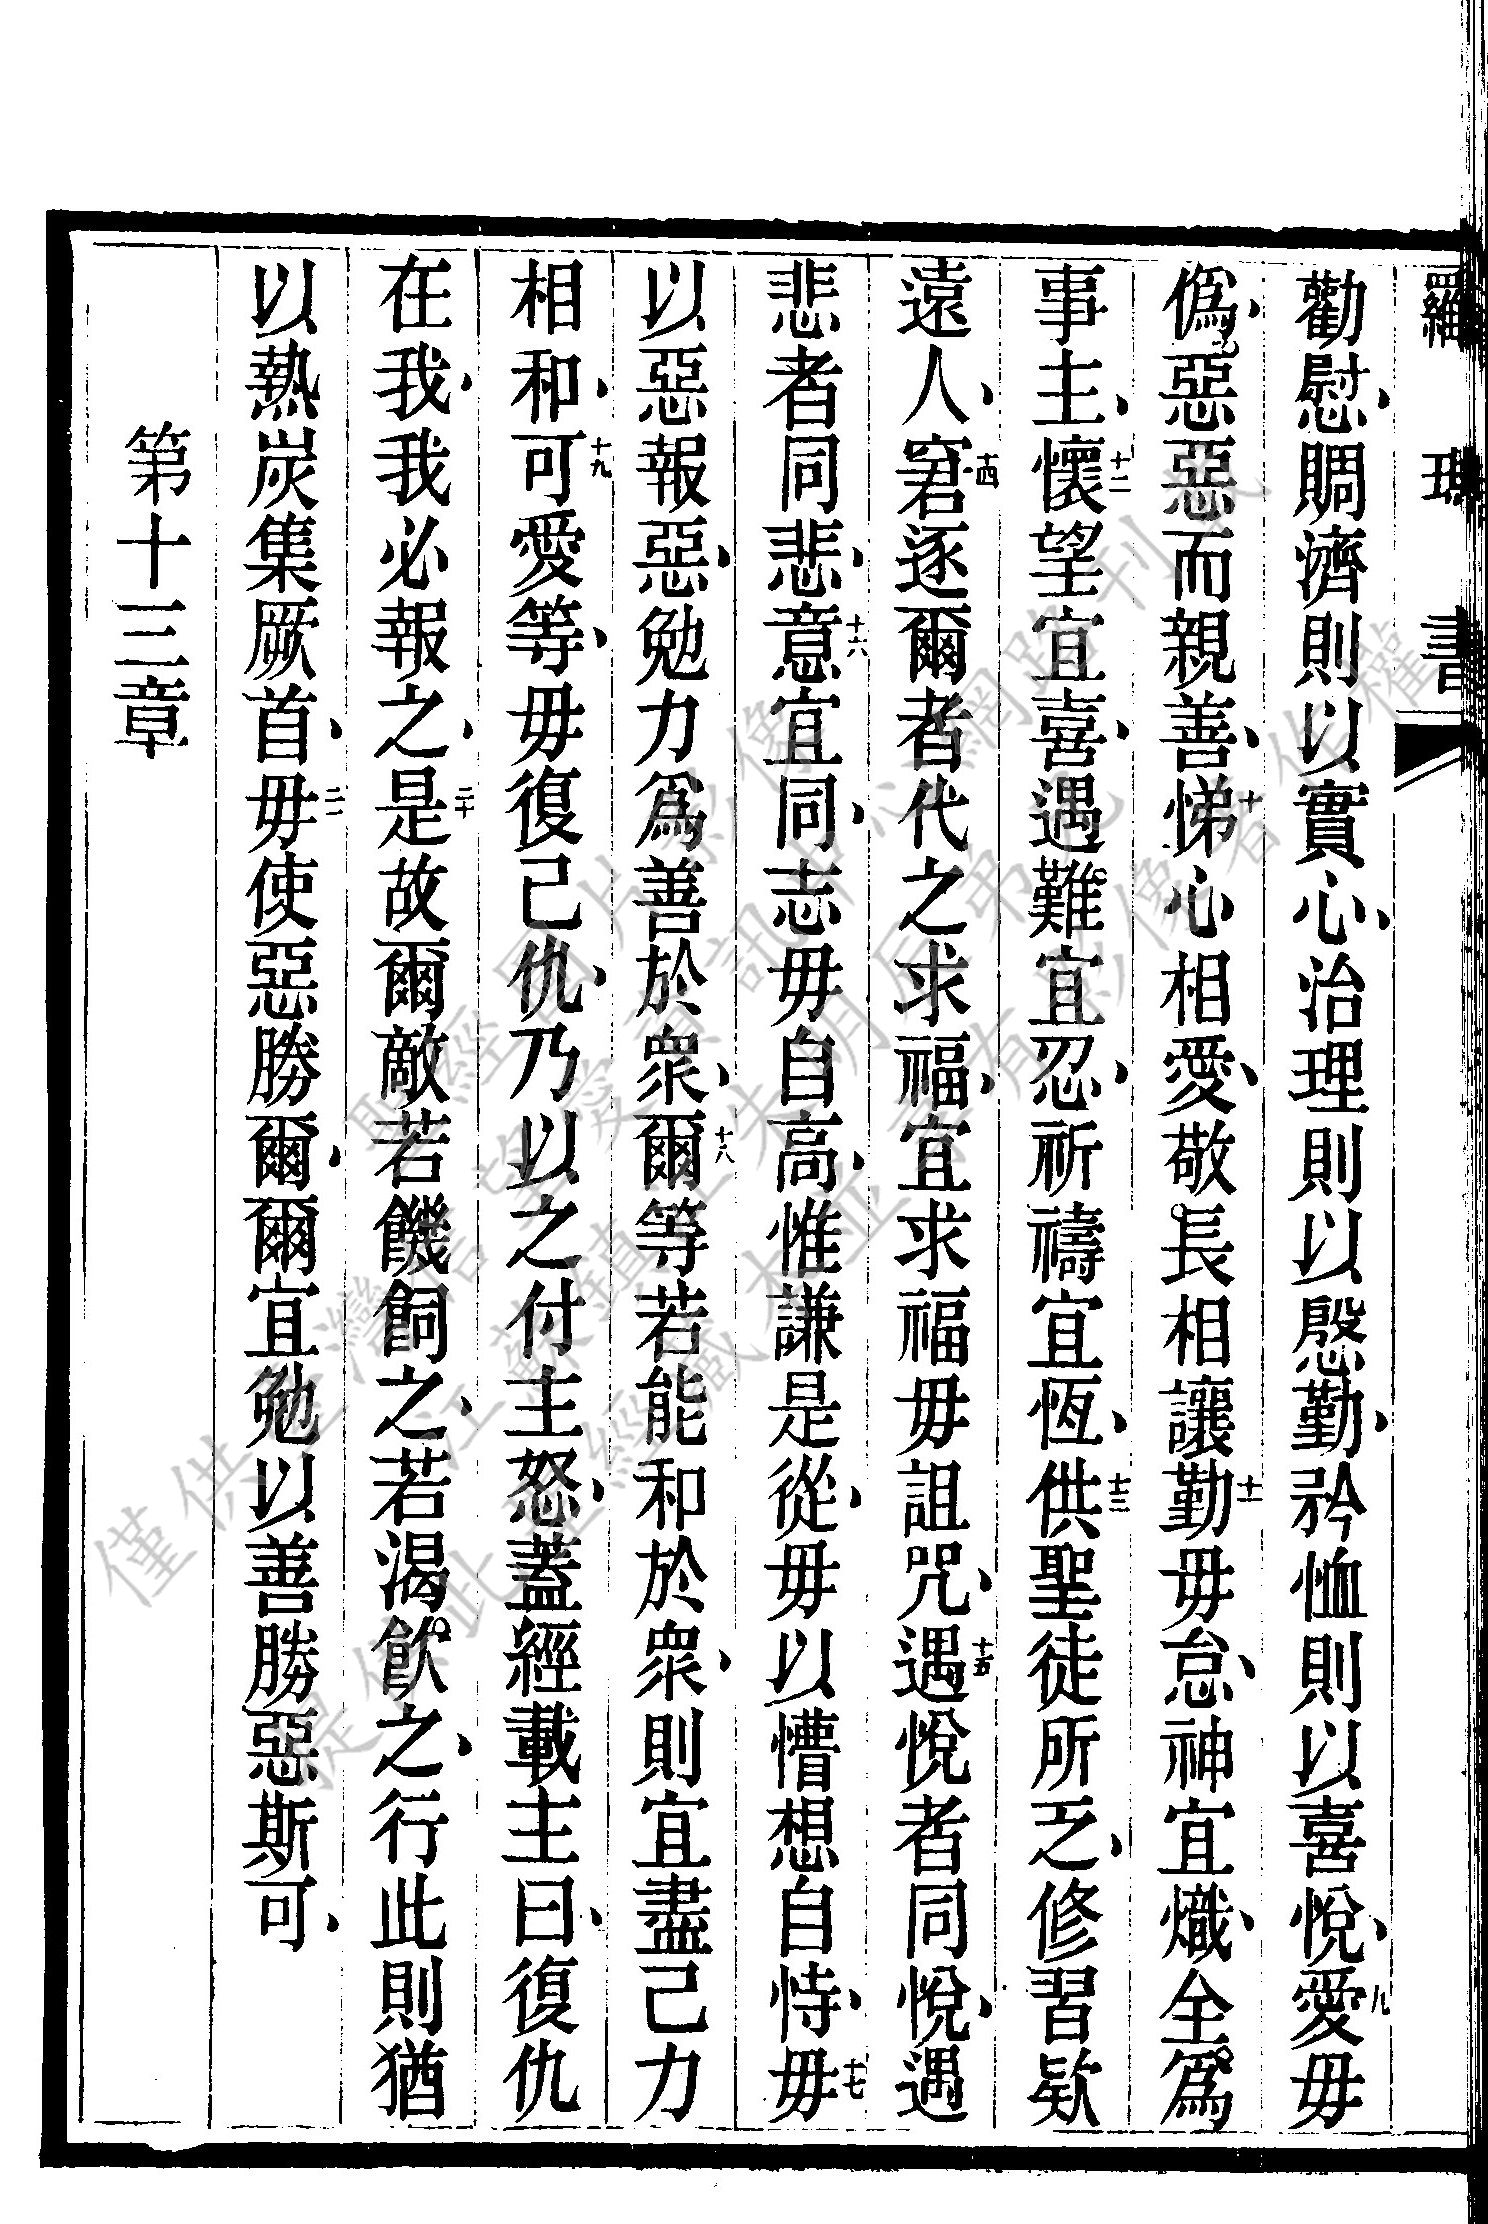 羅瑪書
勸慰、賙濟則以實心、治理則以慇勤、矜恤則以喜悅、九愛毋
僞、惡惡而親善、十悌心相愛、敬長相讓十一勤毋怠、神宜熾、全爲
事主、十二懷望宜喜、遇難宜忍、祈禱宜恆、十三供聖徒所乏、修習欵
遠人、十四窘逐爾者代之求福、宜求福毋詛咒、十五遇悅者同悅、遇
悲者同悲、十六意宜同、志毋自高、惟謙是從、毋以懵想自恃、十七毋
以惡報惡、勉力爲善於衆、十八爾等若能和於衆、則宜盡己力
相和、十九可愛等、毋復己仇、乃以之付主怒、蓋經載主曰、復仇
在我、我必報之、二十是故爾敵若饑飼之、若渴飲之、行此則猶
以熱炭集厥首、二一毋使惡勝爾、爾宜勉以善勝惡斯可、
第十三章